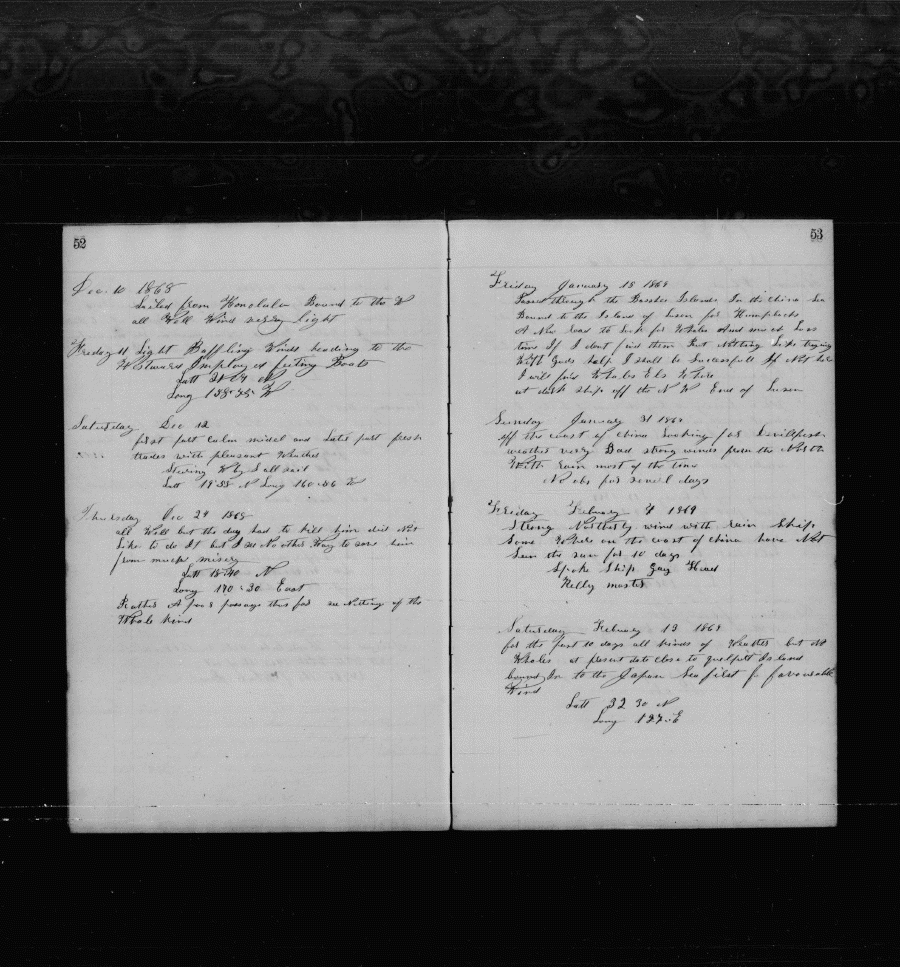 52
Dec 10 1868
Sailed from Honolulu Bound to the W
all Well Wind very light
Friday 11 Light Baffling Winds heading to the
Westward Imployed fiting Boats
Latt 21 19 N
Long 158-25 W
Saturday Dec 12
first part calm midel and Later part fresh
trades with pleasant Weather
Stering W by S all sail
Latt 19-55 N Long 160-46 W
Thursday Dec 24 1868
all Well but the dog had to kill him did Not
Like to do It but I see No other Way to save him
from much misery
Latt 18-40 N
Long 170-30 East
Rather A poor passage thus far see Nothing of the
Whale kind
53
Friday January 15 1869
Passed through the Bashee Islands In the China Sea
Bound to the Island of Luson for Humpbacks
A New Way to Look for Whales And much Loss
time If I dont find them But Nothing Like trying
With Gods help I shall be Successfull If Not
I will find Whales Els Where
at dark Ships off the N W End of Luson
Sunday January 31 1869
off the coast of China Looking for Devilfish
weather very Bad strong winds from the North
With rain most of the time
No obs for severl days
Friday February 4 1869
Strong Northerly wind with rain Ship
Some Where on the coast of China have Not
Seen the sun for 10 days
Spoke Ship Gay Head
Kelly master
Saturday February 13 1869
for the first 10 days all kinds of Weather but No
Whales at present date close to Quelpart Island
bound In to the Japan Sea first favourable
Wind
Latt 32 30 N
Long 127- E